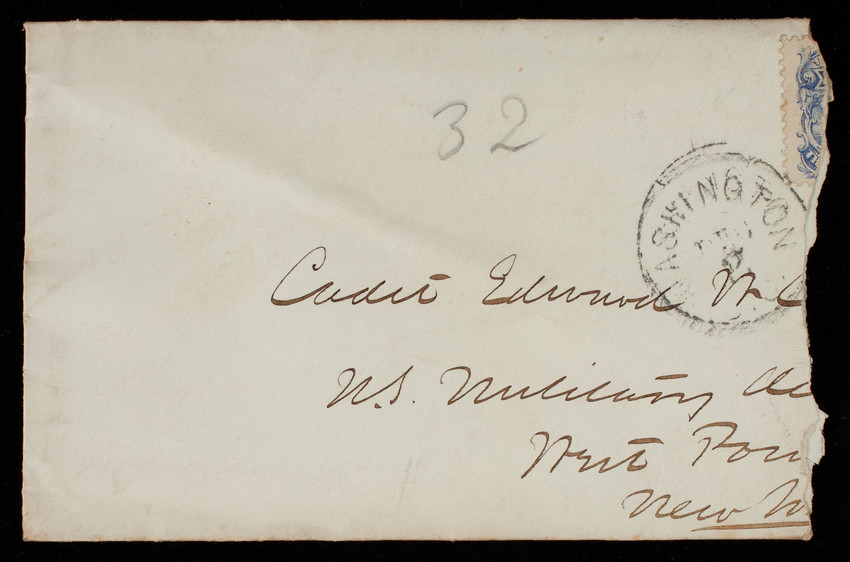 32
WASHINGTON
Cadet Edward W. C
U.S. Military Ac
West Poin
New Yo